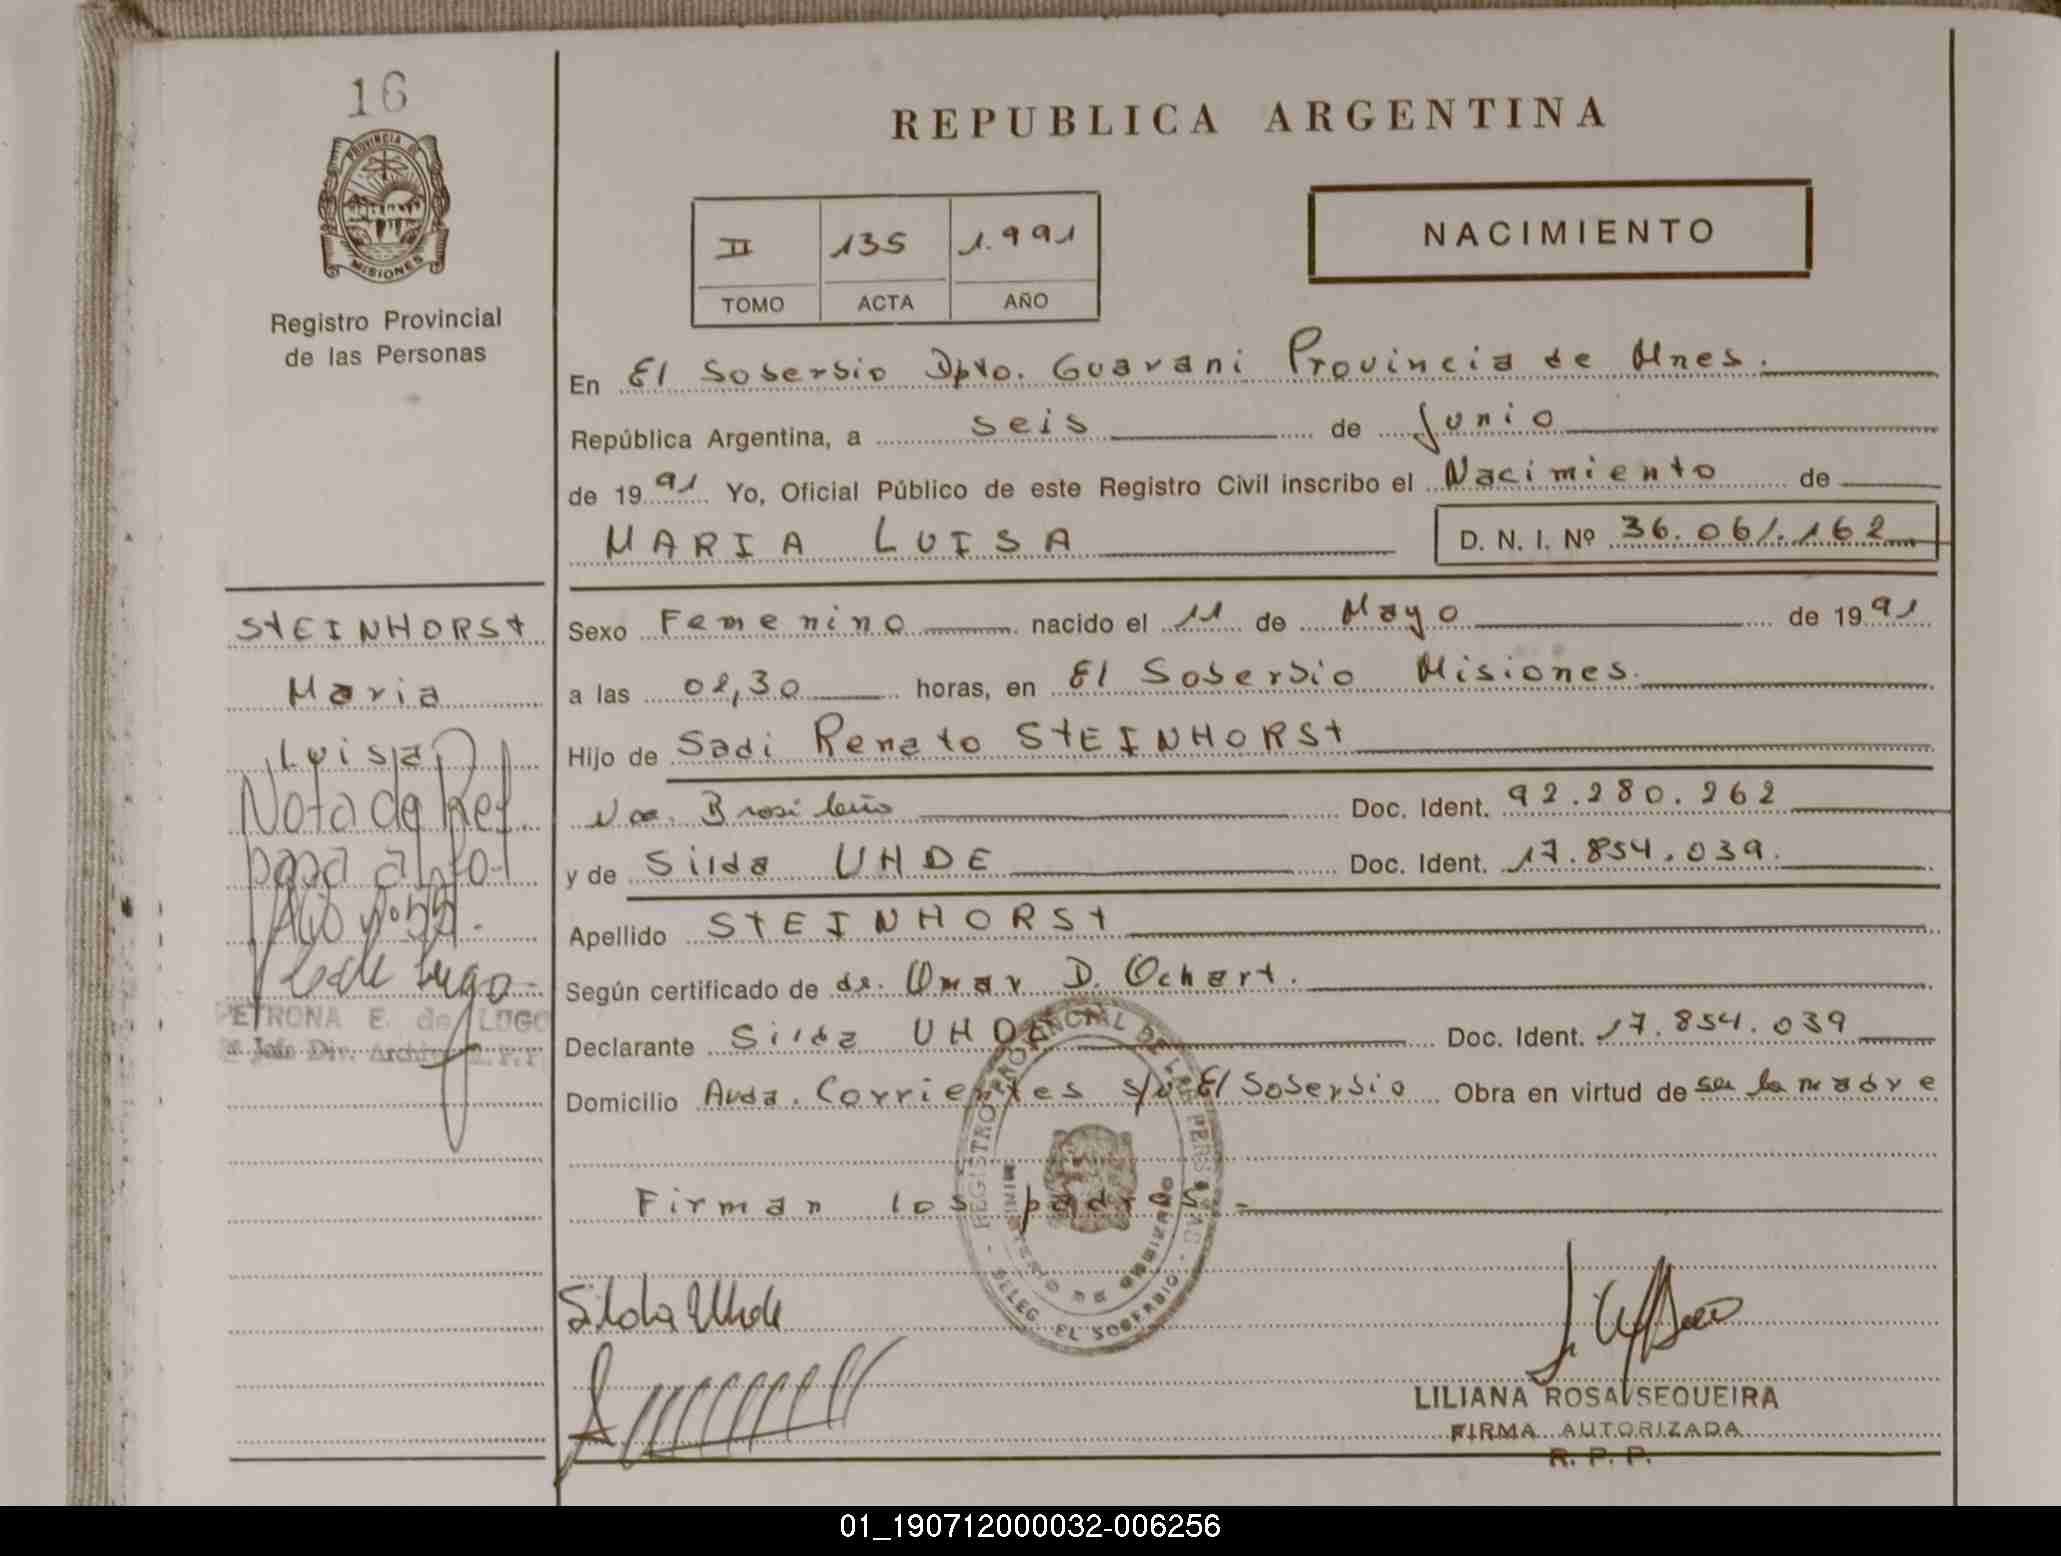 16
PROVINCIA DE
MISIONES
Registro Provincial
de las Personas
REPUBLICA ARGENTINA
NACIMIENTO
II 135 1.991
TOMO ACTA AÑO
En El Soberbio Dpto. Guarani Provincia de Mnes.
República Argentina, a seis de Junio
de 1991 Yo, Oficial Público de este Registro Civil inscribo el Nacimiento de
MARIA LUISA D. N. I. Nº 36.061.162
STEINHORST
Maria
Luisa
Nota de Ref
pasa al fol
Año
PETRONA E. de LUGO
Sexo Femenino nacido el 11 de Mayo de 1991
a las 02,30 horas, en El Soberbio Misiones.
Hijo de Sadi Renato STEINHORST
Nac. Brasileño Doc. Ident. 92.280.262
y de Silda UHDE Doc. Ident. 17.854.039.
Apellido STEINHORST
Según certificado de dr. Omar D. Ochart.
Declarante Silda UHDE Doc. Ident. 17.854.039
Domicilio Avda. Corrientes s/n El Soberbio Obra en virtud de ser la madre
Firman los padres.-
REGISTRO PROVINCIAL DE LAS PERSONAS
DELEG. EL SOBERBIO
Silda Uhde
LILIANA ROSA SEQUEIRA
FIRMA AUTORIZADA
R. P. P.
01_190712000032-006256